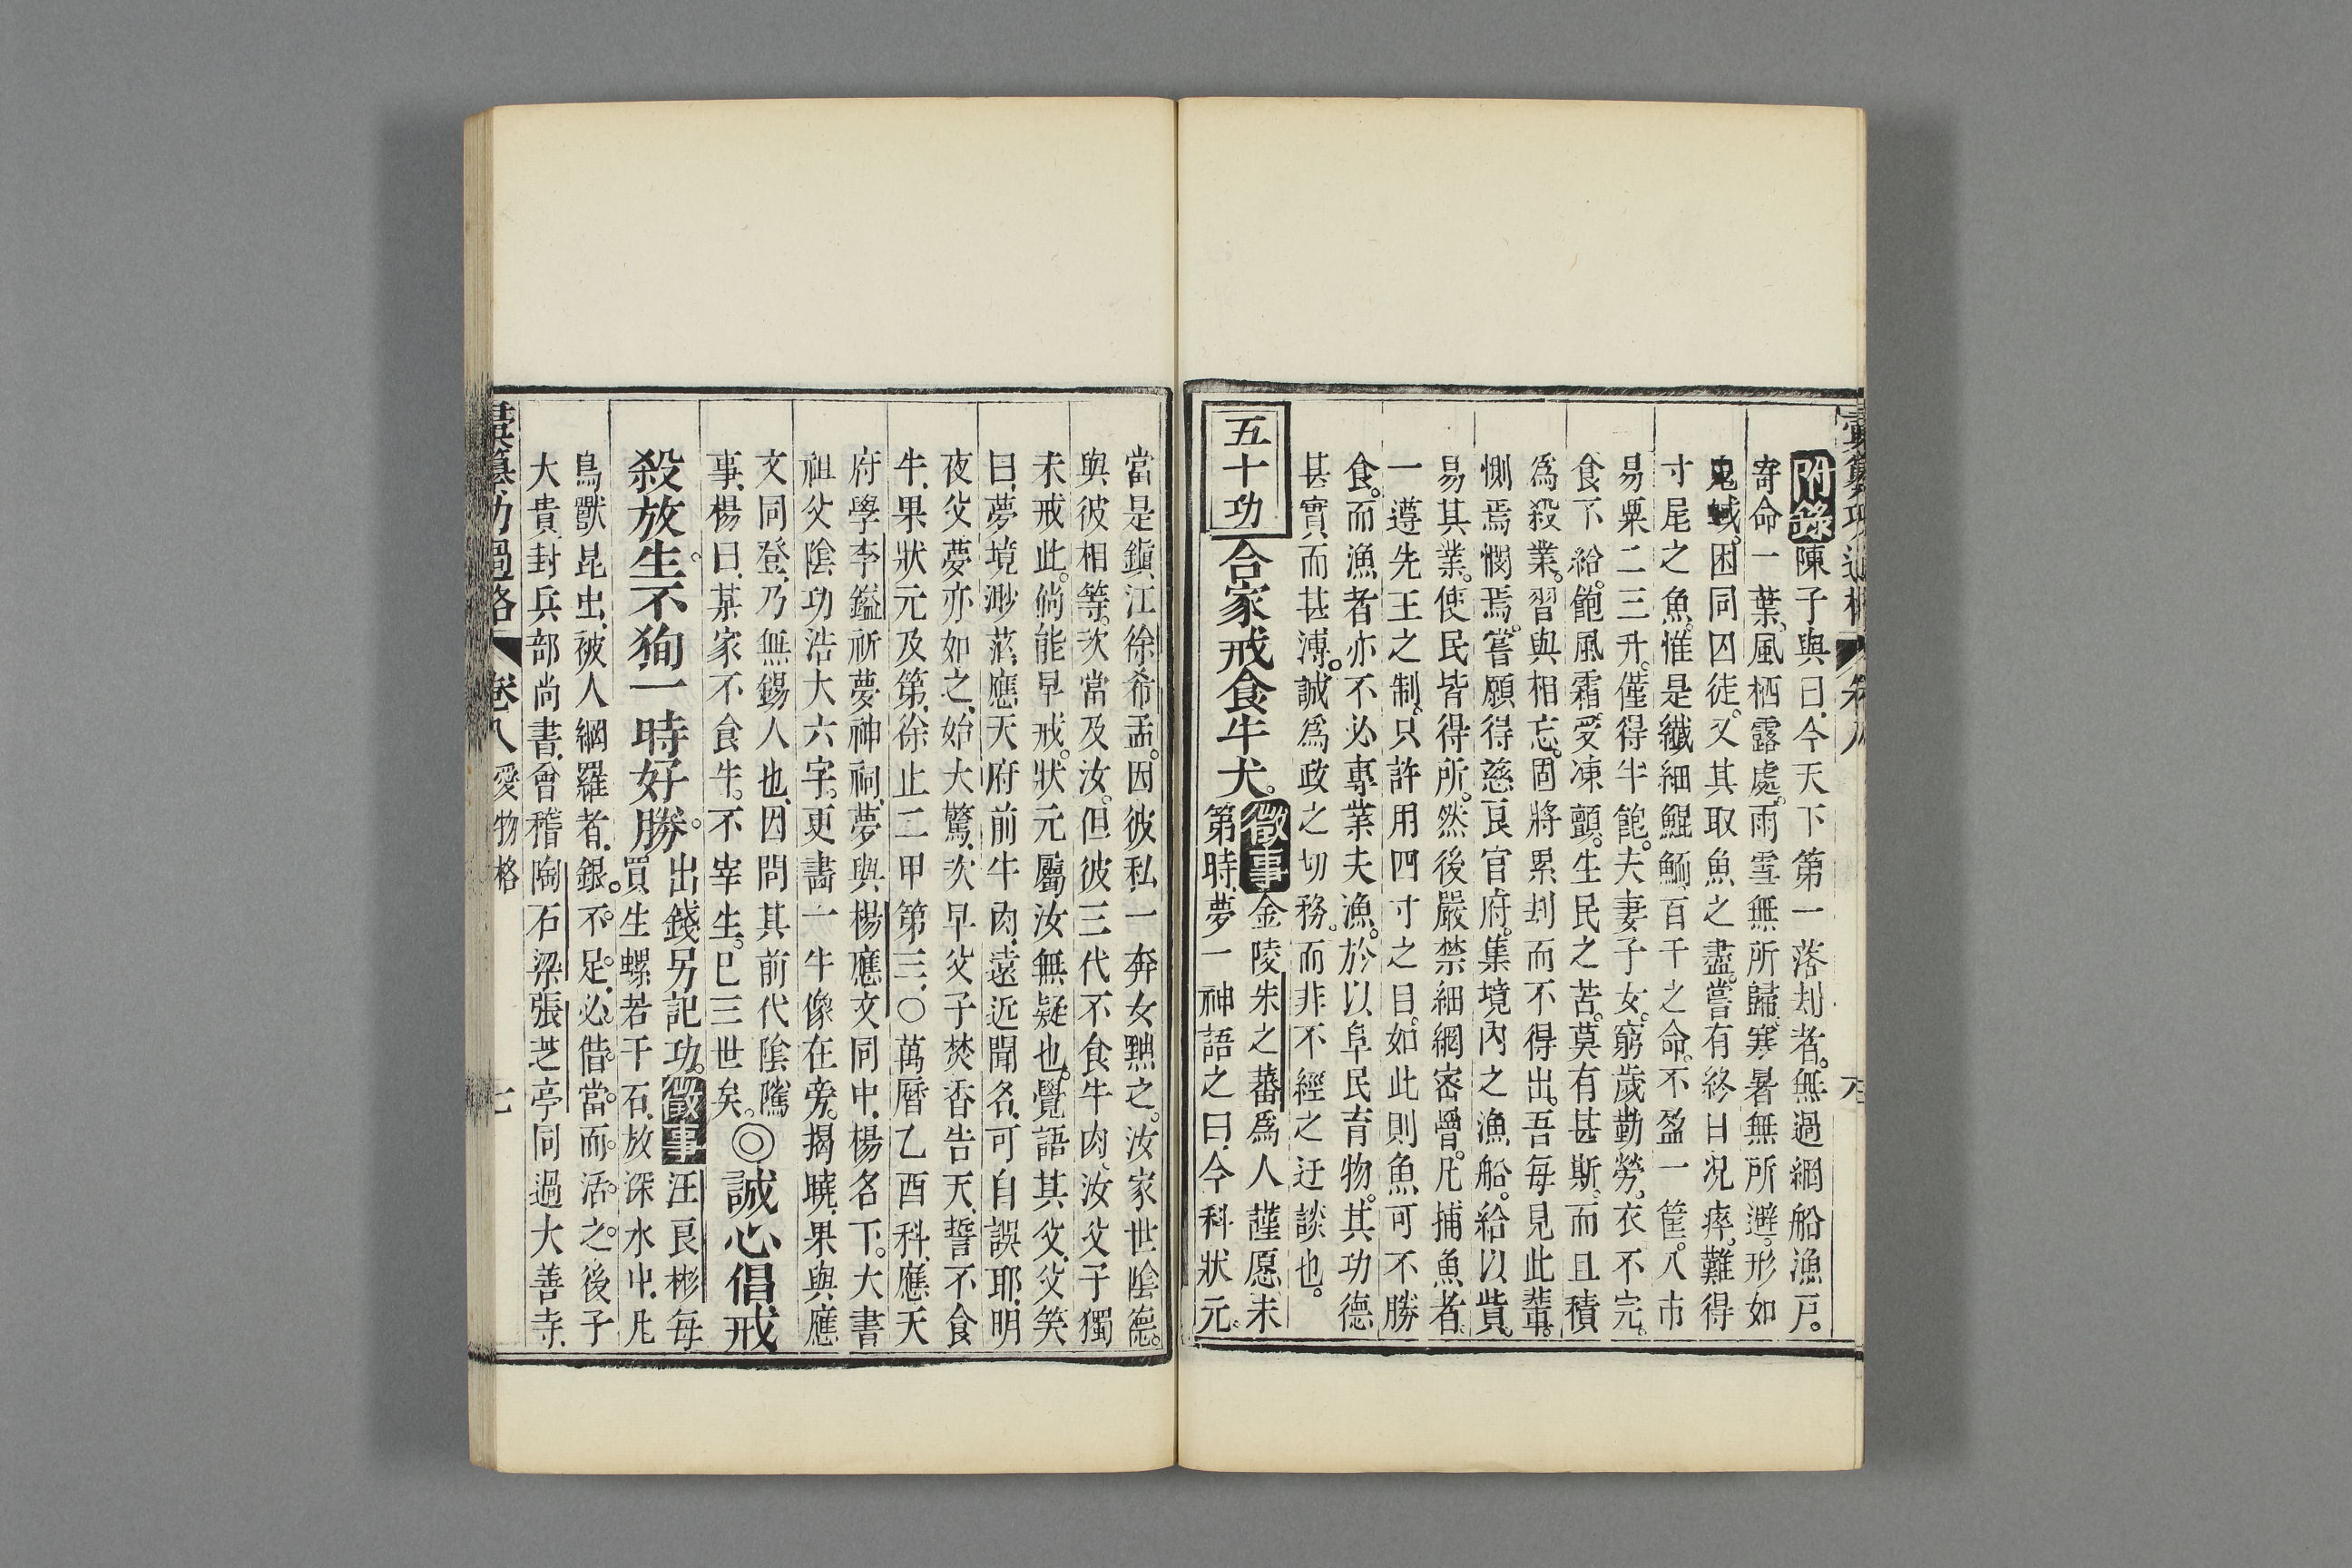 附錄陳子與曰今天下第一落刦者。無過網船漁戸。
寄命一葉、風栖露處。雨雪無所歸。寒暑無所避。形如
鬼蜮。困同囚徒。又其取魚之盡。嘗有終日况瘁。難得
寸尾之魚。惟是纖細鯤鮞、百千之命。不盈一筐。入市
易粟二三升。僅得半飽。夫妻子女。窮歲勤勞。衣不完。
食不給。飽風霜。受凍顫。生民之苦。莫有甚斯。而且積
爲殺業。習與相忘。固將累刦而不得出。吾每見此輩。
惻焉憫焉。嘗願得慈良官府。集境內之漁船。給以貲。
易其業。使民皆得所。然後嚴禁細網密罾。凡捕魚者。
一遵先王之制。只許用四寸之目。如此則魚可不勝
食。而漁者亦不必專業夫漁。於以阜民育物。其功德
甚實、而甚溥。誠爲政之切務。而非不經之迂談也。
五十功
合家戒食牛犬。徵事金陵朱之蕃爲人謹愿未
第時、夢一神語之曰、今科狀元。
當是鎭江徐希孟。因彼私一奔女黜之。汝家世陰德。
與彼相等。次當及汝。但彼三代不食牛肉、汝父子獨
未戒此。倘能早戒。狀元屬汝無疑也。覺語其父、父笑
曰、夢境渺茫、應天府前牛肉、遠近聞名、可自誤耶、明
夜父夢亦如之、始大驚、次早父子焚香告天、誓不食
牛、果狀元及第、徐止二甲第三、〇萬曆乙酉科、應天
府學李鎰祈夢神祠、夢與楊應文同中、楊名下。大書
祖父陰功浩大六字。更畵一牛像在旁。揭曉、果與應
文同登、乃無錫人也、因問其前代陰隲
事、楊曰、某家不食牛。不宰生。已三世矣。◎誠心倡戒
殺放生。不狥一時好勝。出錢另記功。徵事汪良彬每
買生螺若干石、放深水中、凡
鳥獸昆虫、被人網羅者、銀。不。足。必。借。當。而。活。之。後子
大貴、封兵部尚書、會稽陶石梁張芝亭同過大善寺、
彙纂功過格 卷八 愛物格 七